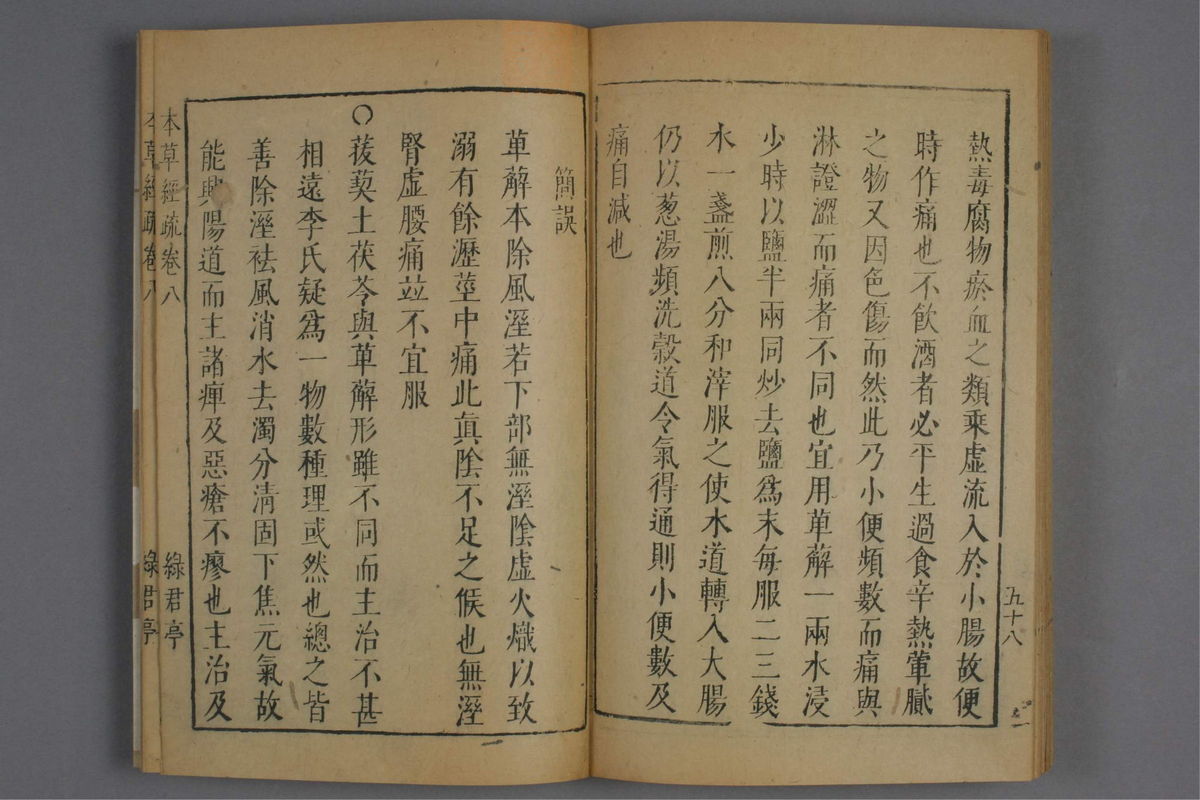 熱毒腐物瘀血之類乘虛流入於小腸故便
時作痛也不飲酒者必平生過食辛熱葷膩
之物又因色傷而然此乃小便頻數而痛與
淋證澀而痛者不同也宜用萆薢一兩水浸
少時以鹽半兩同炒去鹽爲末每服二三錢
水一盞煎八分和滓服之使水道轉入大腸
仍以葱湯頻洗穀道令氣得通則小便數及
痛自減也
五十八
簡誤
萆薢本除風溼若下部無溼陰虛火熾以致
溺有餘瀝莖中痛此眞陰不足之候也無溼
腎虛腰痛竝不宜服
○菝葜土茯苓與萆薢形雖不同而主治不甚
相遠李氏疑爲一物數種理或然也總之皆
善除溼祛風消水去濁分淸固下焦元氣故
能興陽道而主諸痺及惡瘡不瘳也主治及
本草經疏卷八 綠君亭
本草經疏卷八 綠君亭